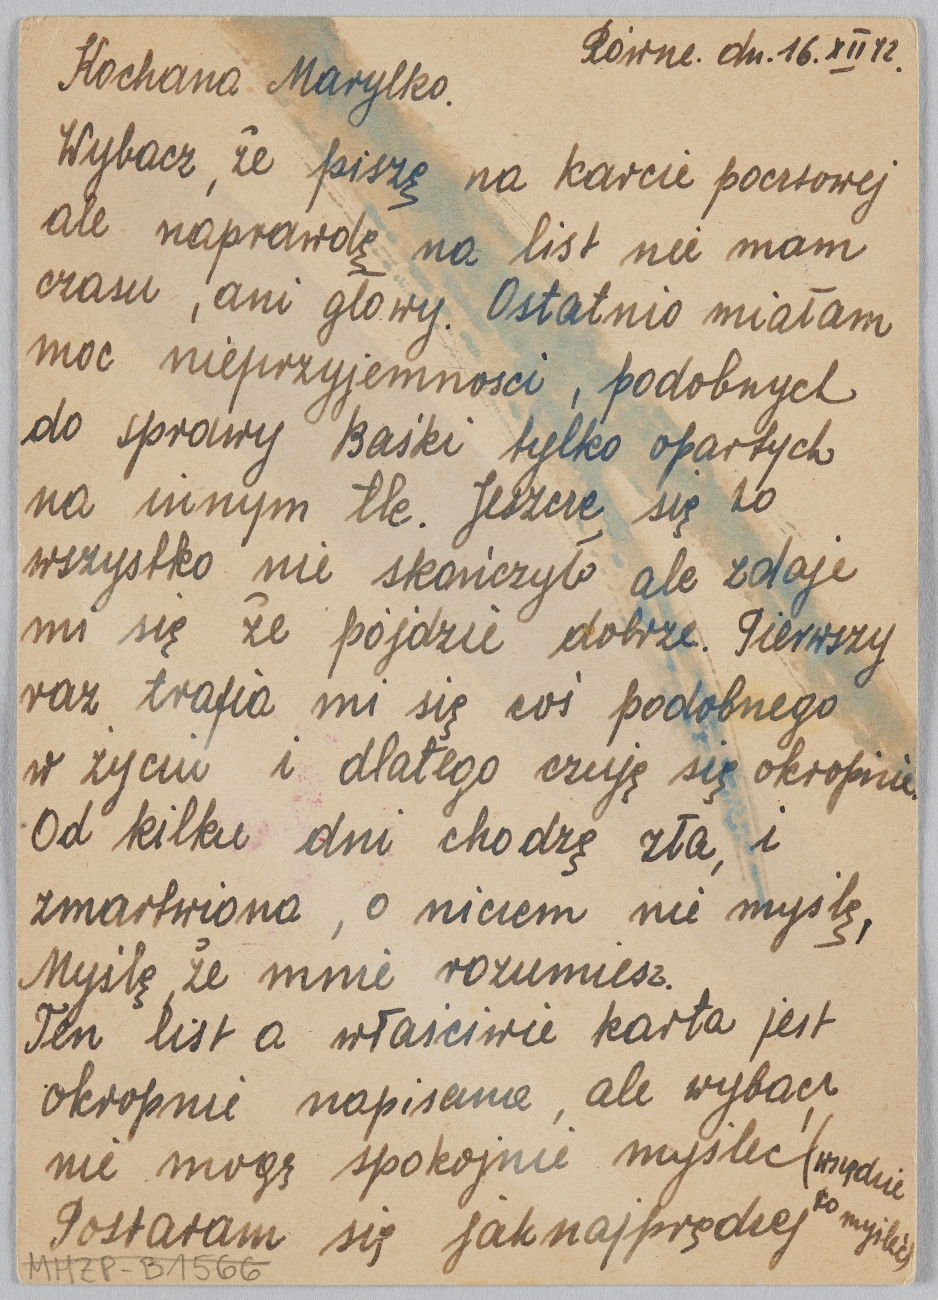 Równe. dn. 16. XII 42.
Kochana Marylko.
Wybacz, że piszę na karcie pocztowej
ale naprawdę na list nie mam
czasu, ani głowy. Ostatnio miałam
moc nieprzyjemności, podobnych
do sprawy Baśki tylko opartych
na innym tle. Jeszcze się to
wszystko nie skończyło ale zdaje
mi się że pójdzie dobrze. Pierwszy
raz trafia mi się coś podobnego
w życiu i dlatego czuję się okropnie.
Od kilku dni chodzę zła, i
zmartwiona, o niczem nie myślę,
Myślę, że mnie rozumiesz.
Ten list a właściwie karta jest
okropnie napisana, ale wybacz,
nie mogę spokojnie myśleć (wszędzie
to myśleć)
Postaram się jaknajprędzej
MHZP-B1566